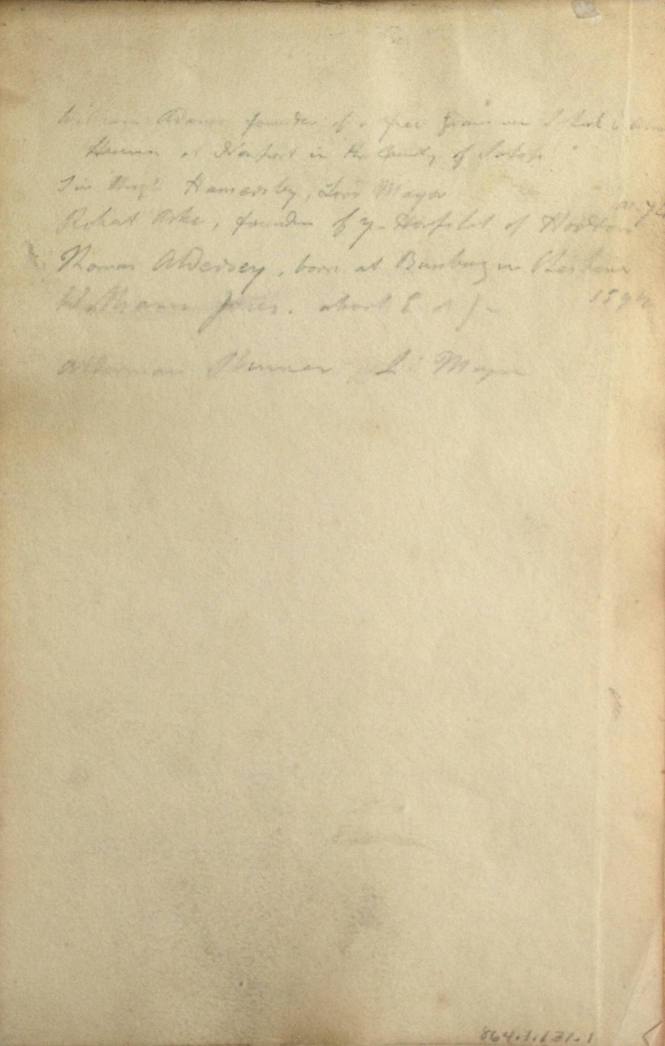 William Adams founder of a free Grammar School &
at Newport in the County of Salop
Sir Hugh Hamersley, Lord Mayor
Robert Aske, founder of ye Hospital of Hoxton
Thomas Aldersey, born at Bunbury in Cheshire
William Jones. about 1594
Alderman Ld Mayor
864.1.131.1